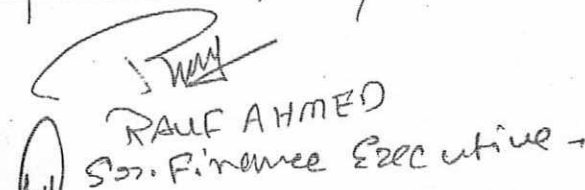 RAUF AHMED
Sr. Finance Executive